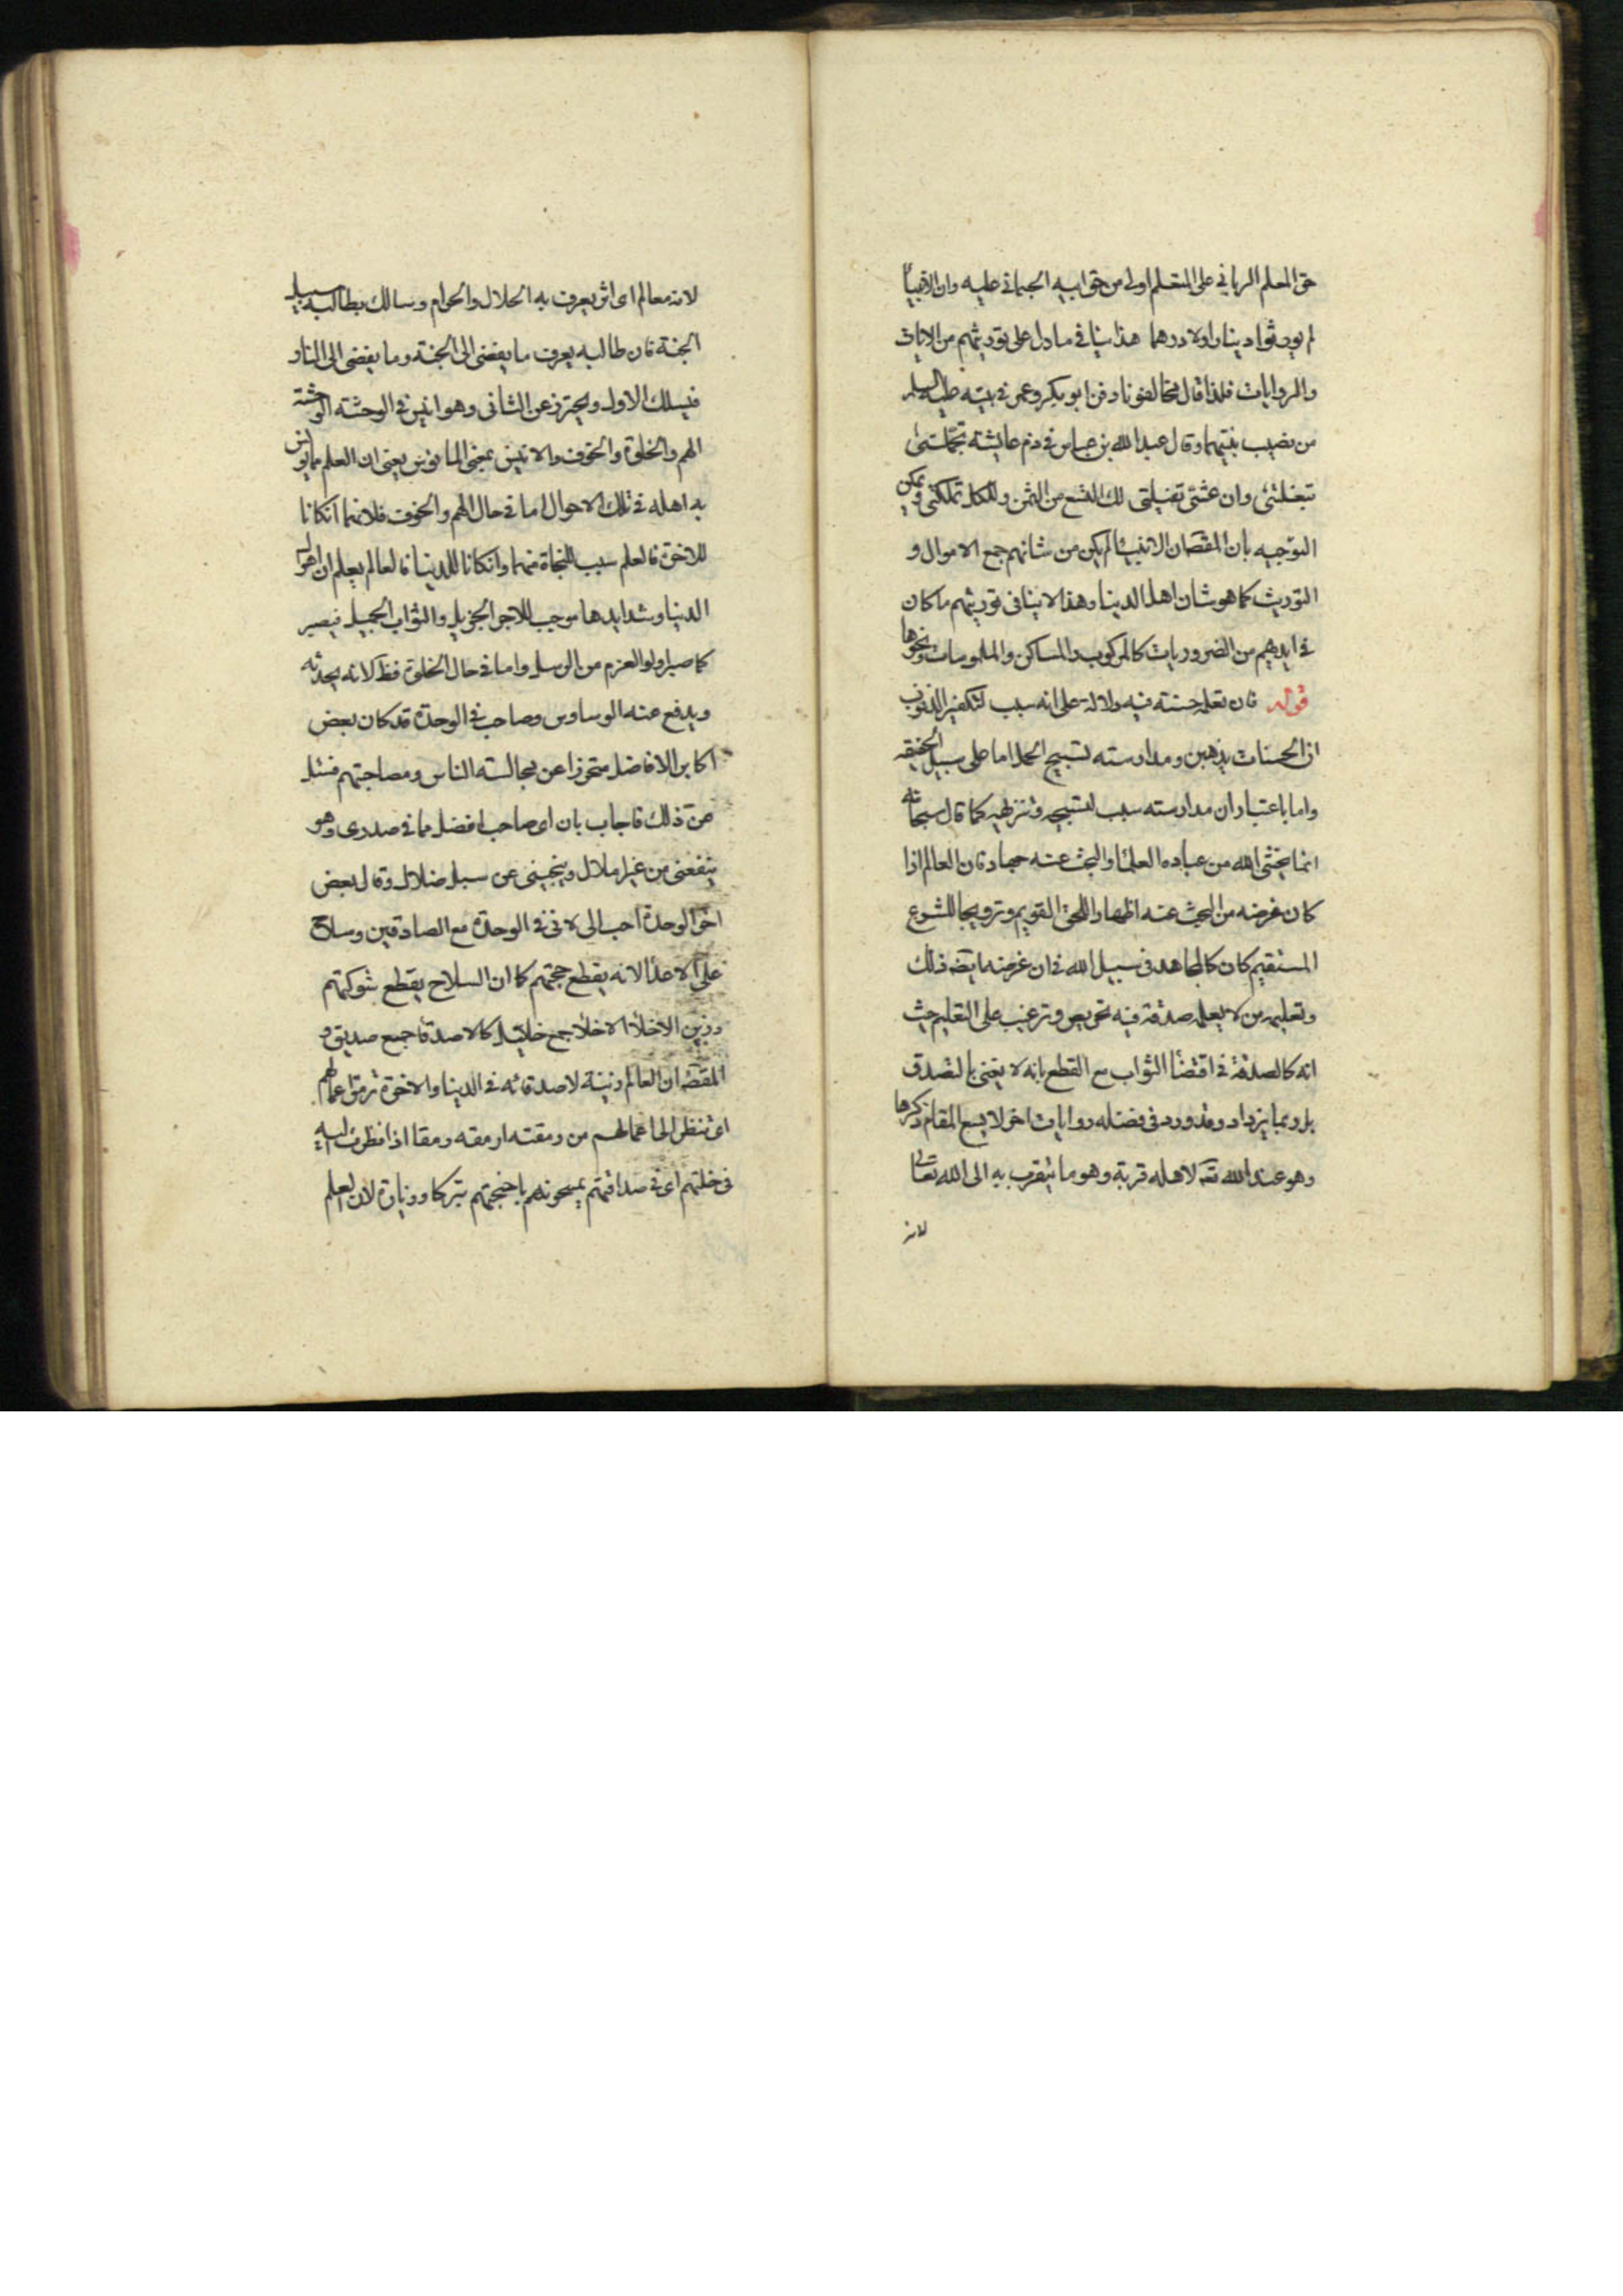 حق المعلم الرباني على المتعلم اولى من حق ابيه الجسماني عليه وان الانبيأ
لم يورثوا دينارا ولا درهما هذا ينافي ما دل على توريثهم من الايات
والروايات فلذا قال مخالفونا دفن ابو بكر وعمر في بيته عليه السلم
من نصيب بنتيهما وقال عبد الله بن عباس في ذم عايشة تجملتى
تبغلتى وان عشتى تفيلتى لك التسع من الثمن وللكل تملكتى ويمكن
التوجيه بان المقصان الانبيا لم يكن من شانهم جمع الاموال و
التوريث كما هو شان اهل الدينا وهذا لا ينافى توريثهم ما كان
في ايديهم من الضروريات كالمركوب والمساكن والملبوسات ونحوها
قوله فان تعلمه حسنة فيه دلالة على انه سبب لتكفير الذنوب
ان الحسنات يذهبن ومدارسته تسبيح الحمل اما على سبيل الحقيقه
واما باعتبار ان مدارسته سبب لتسبيحه وتنزيهه كما قال سبحانه
انما يخشى الله من عباده العلمأ والبحث عنه جهاد فان العالم اذا
كان غرضه من البحث عنه اظهارا للحق القويم وترويجا للشرع
المستقيم كان كالمجاهد فى سبيل الله فان غرضه ايضه ذلك
وتعليمه من لا يعلمه صدقة فيه تحريص وترغيب على التعليم حيث
انه كالصدقة في اقتضأ الثواب مع القطع بانه لا يفنى بالتصدق
بل ربما يزداد وقد ورد فى فضله روايات اخر لا يسع المقام ذكرها
وهو عند الله تعه لاهله قربة وهو ما يتقرب به الى الله تعالى
لانه
لانه معالم اى اثر يعرف به الحلال والحرام وسالك بطالبه سبيل
الجنة فان طالبه يعرف ما يفضى الى الجنة وما يفضى الى النار
فيسلك الاول ويحترز عن الثانى وهو انيس في الوحشة الوحشة
الهم والخلوة والخوف والانيس بمعنى المانوس يعنى ان العلم مما يونس
به اهله في تلك الاحوال اما في حال الهم والخوف فلانهما انكانا
للاخرة فالعلم سبب للنجاة منهما وانكانا للدينا فالعالم يعلم ان اهوال
الدنيا وشدايدها موجب للاجر الجزيل والثواب الجميل فيصير
كما صبر اولو العزم من الرسل واما في حال الخلوة فظ لانه يحدثه
ويدفع عنه الوساوس وصاحب في الوحدة قد كان بعض
اكابر الافاضل متحرزا عن مجالسته الناس ومصاحبتهم فسئل
عن ذلك فاجاب بان اى صاحب افضل مما في صدرى وهو
ينفعنى من غير ملال وينجينى عن سبل ضلال وقال بعض
اخر الوحدة احب الى لانى في الوحدة مع الصادقين وسلاح
على الاعدأ لانه يقطع حجتهم كما ان السلاح يقطع شوكتهم
وزين الاخلأ الاخلأ جمع خليل كالاصدقأ جمع صديق و
المقصه ان العالم زينة لاصدقائه في الدينا والاخرة ترمق اعمالهم
اى تنظر الى اعمالهم من رمقته ارمقه رمقا اذا نظرت اليه
فى خلتهم اى في صداقتهم يمسحونهم باجنحتهم تبركا وزيارة لان العلم